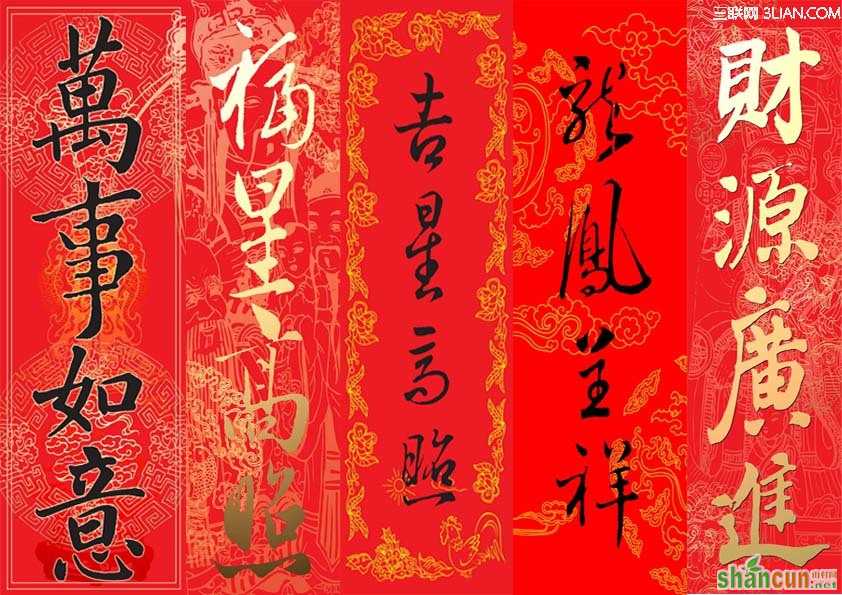 三联网 3LIAN.COM
萬事如意
福星高照
吉星高照
龍鳳呈祥
財源廣進
shancun
.net